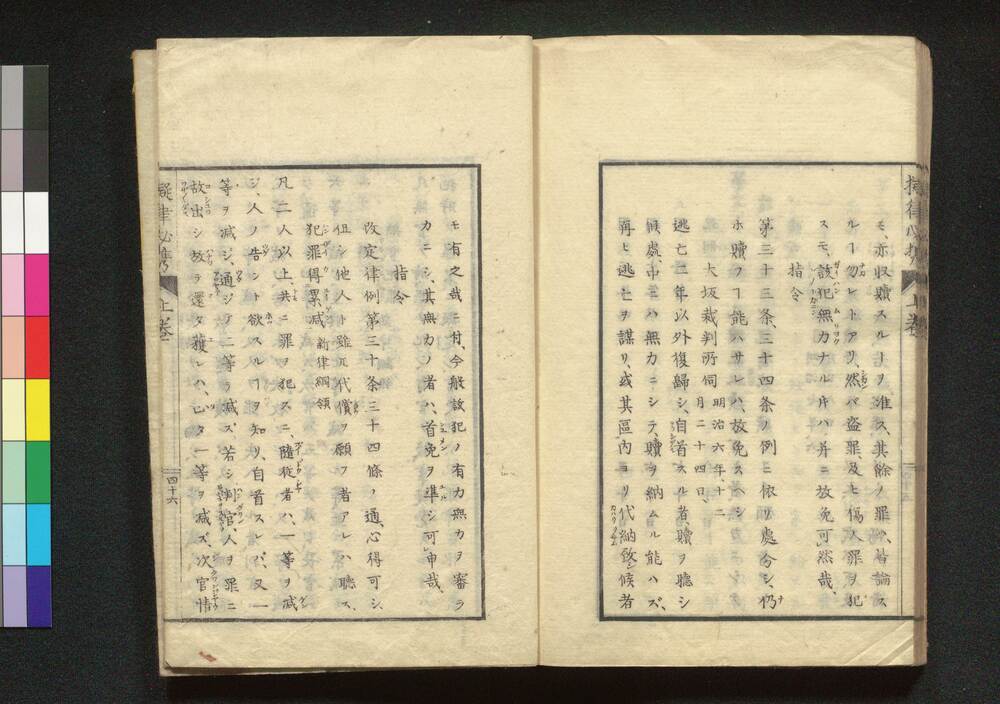 モ、亦収贖スルヿヲ准ス、其餘ノ罪ハ、皆論ス
ルヿ勿レトアリ、然バ盗罪及ヒ傷人罪ヲ犯
スモ、該犯無力ナルキハ并ニ放免可然哉、
指令
第三十三条、三十四条ノ例ニ依リ處分シ、仍
ホ贖フヿ能ハサレハ、放免スヘシ
大坂裁判所伺 明治六年、十二月二十四日、
逃亡二年以外復歸シ、自首スル者、贖ヲ聴シ
候處、中ニハ無力ニシテ贖ヲ納ムル能ハズ、
再ヒ逃亡ヲ謀リ、或其區内ヨリ代納致シ候者
モ有之哉ニ付、今般該犯ノ有力無力ヲ審ラ
カニシ、其無力ノ者ハ、首免ヲ準シ可申哉、
指令
改定律例第三十条三十四條ノ通、心得可シ、
但シ他人ト雖𪜈代償ヲ願フ者アルハ聴ス、
犯罪得累減 新律綱領
凡二人以上、共ニ罪ヲ犯スニ、隨従者ハ、一等ヲ減
シ、人ノ告シト欲スルヿヲ知リ、自首スレバ、又一
等ヲ減ジ、通ジテ二等ヲ減ズ、若シ判官、人ヲ罪ニ
故出シ、放ヲ還タ獲レハ、亡タ一等ヲ減ズ、次官情
擬律必携 上巻
四十六
上巻